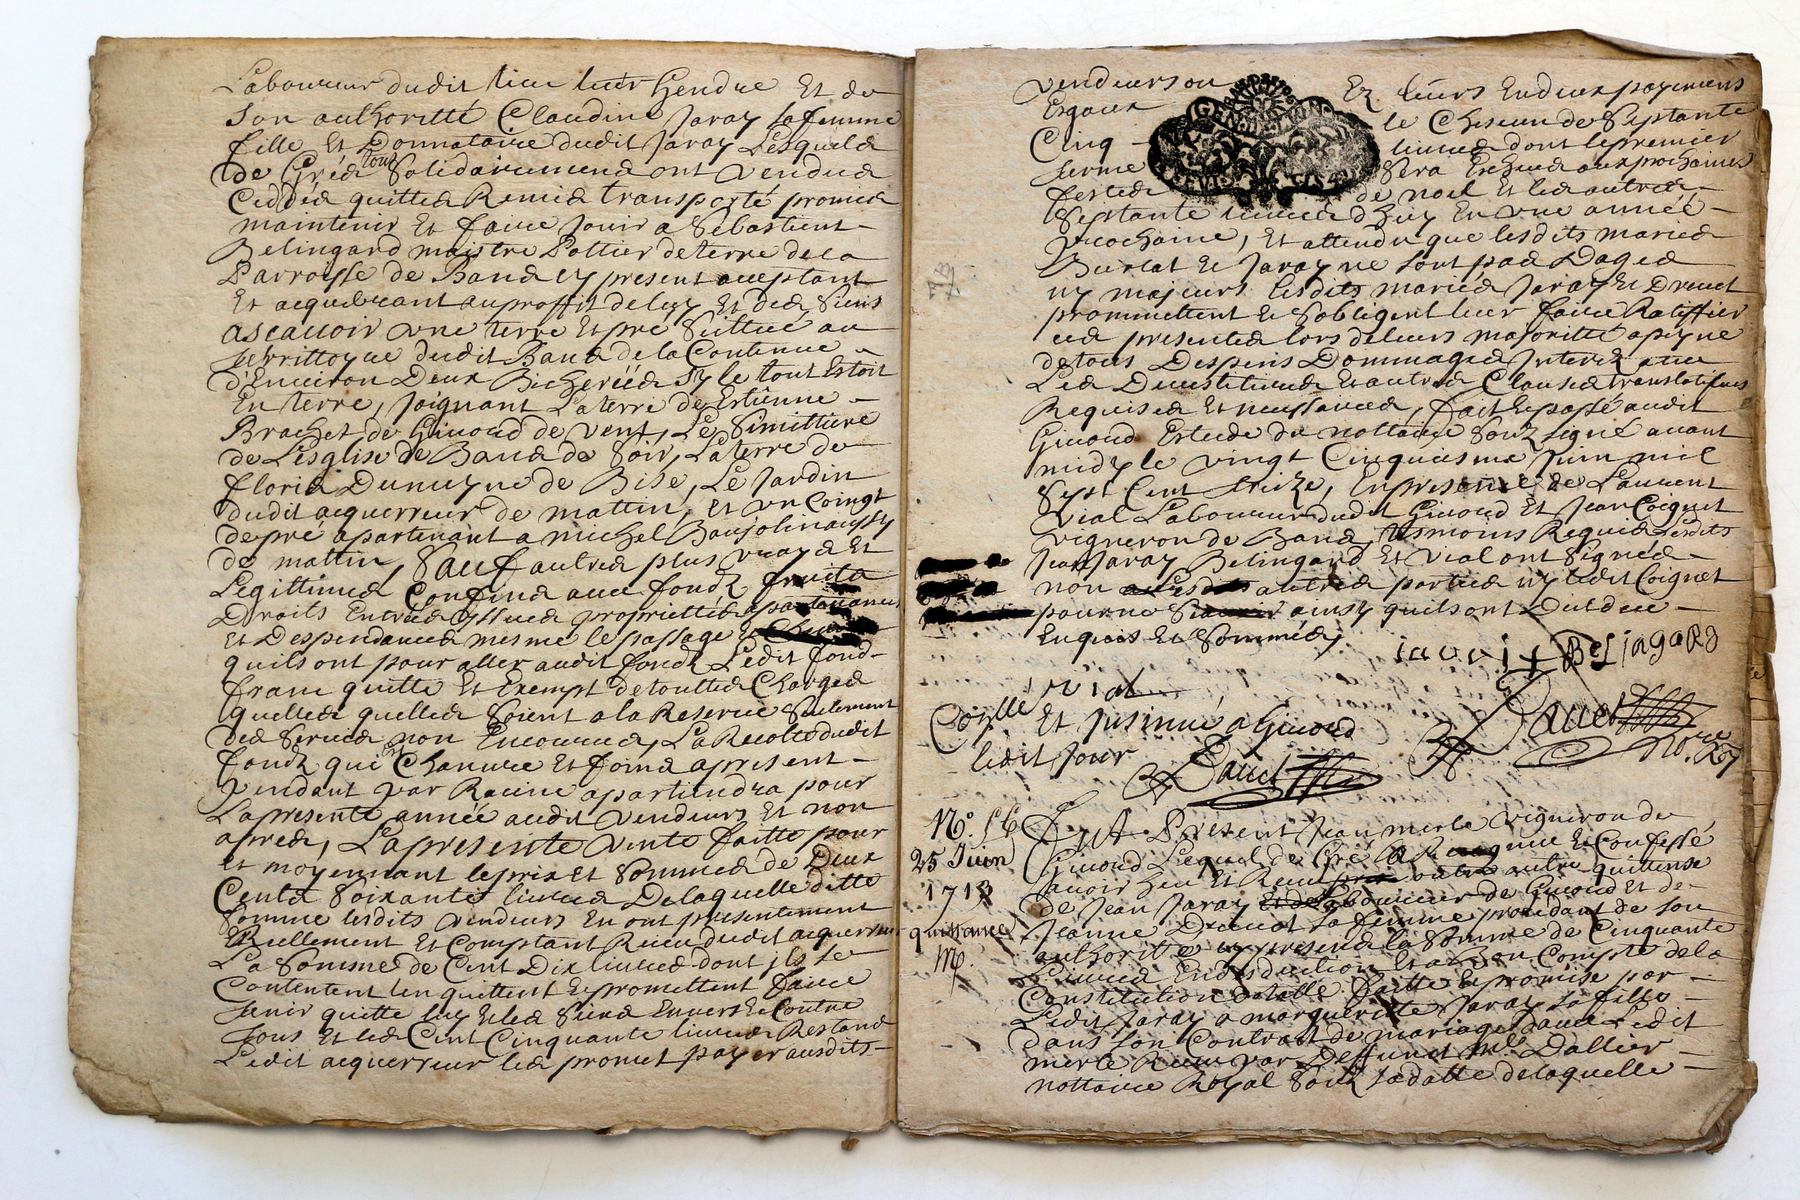 Laboureur dudit lieu leur Gendre Et de
Son authoritté Claudine Jaray sa femme
fille Et Donnataire dudit Jaray Lesquels
de Gréés tous Solidairement ont vendus
Ceddés quittés Remis transporté promis
maintenir Et faire Jouir a Sebastient
Belingard maistre Pottier de terre de la
Parroisse de Band cy present acceptant
Et acquérant au proffit de luy Et des Siens
ascauoir vne terre Et pré Scittué au
dudit Band de la Contenue
d'Enuiron Deux Bicherées Sy le tout Estoit
En terre, Joignant La terre de Estienne
Brachet de Giuord de vent, Le Simittiere
de Lesglise de Band de Soir, La terre de
floris de Bise, Le Jardin
dudit acquerreur de mattin, Et vn Coingt
de pré apartenant a michel Baujolin aussy
de mattin, Sauf autres plus vrays Et
Legittimes Confins auec fondz fruits
Droits Entrées yssues proprietés apartenances
Et Despendances mesme le passage
quils ont pour aller audit fondz Ledit fond
franc quitte Et Exempt de touttes Charges
quelles quelles Soient a la Reserue Seulement
des Seruis non Encourus, La Recolte dudit
fondz qui Chanure Et foins apresent
pendant par Racine apartiendra pour
La presente année audit vendeurs Et non
apres, La presente vente faitte pour
et moyennant le prix et Somme de Deux
Cents Soixante liures De laquelle ditte
Somme lesdits vendeurs En ont presentement
Reellement Et Comptant Receu dudit acquerreur
La Somme de Cent Dix liures dont ils Se
Contentent len quittent Et promettent faire
tenir quitte luy Et les Siens Enuers Et Contre
tous Et les Cent Cinquante liures Restans
Ledit acquerreur les promet payer ausdits
vendeurs ou Ez leurs En deux payemens
Esgaux le Chescun de Septante
Cinq liures dont le premier
terme Sera Escheu aux prochaines
festes de noel Et les autres
Septante liures d'huy En vne année
prochaine, Et attendu que lesdits mariés
Burlat Et Jaray ne Sont pas Dages
ny majeurs lesdits mariés Jaray Et Dreuet
promettent Et Soblegent leur faire Ratiffier
ces presentes lors de leurs majoritté a peyne
de tous Despens Dommages Interez auec
Les Deuestitures Et autres Clauses translatiues
Requises Et necessaires, fait Et passé audit
Giuord Estude du nottaire Soubz signé auant
midy le vingt Cinquiesme Juin mil
Sept Cent treize, En presence de Laurent
Vial Laboureur dudit Giuord Et Jean Coignet
vigneron de Band, tesmoins Requis Lesdits
Jean Jaray Belingard Et Vial ont Signés
non autres parties ny ledit Coignet
pour ne ainsy quils ont Dit de ce
Enquis Et Sommés,
Jarri
Belingard
vial
Dauet
No.re Roy
Coñlle Et Insinué a Giuord
ledit Jour
Dauet
25 Juin
1713
quittance
Fut Present Jean merle vigneron de
Giuord Lequel de Gré Et Confessé
auoir heu Et Receu outre autre quittense
de Jean Jaray Laboureur de Giuord Et de
Jeanne Dreuet Sa femme procedant de Son
authoritté cy presens la Somme de Cinquante
Liures En desduction Et a bon Compte de la
Constitution dotalle faitte Et promise par
Ledit Jaray a margueritte Jaray Sa fille
dans Son Contract de mariage auec Ledit
merle Receu par Deffunct Me Dallier
nottaire Royal Soubz Sa datte de laquelle